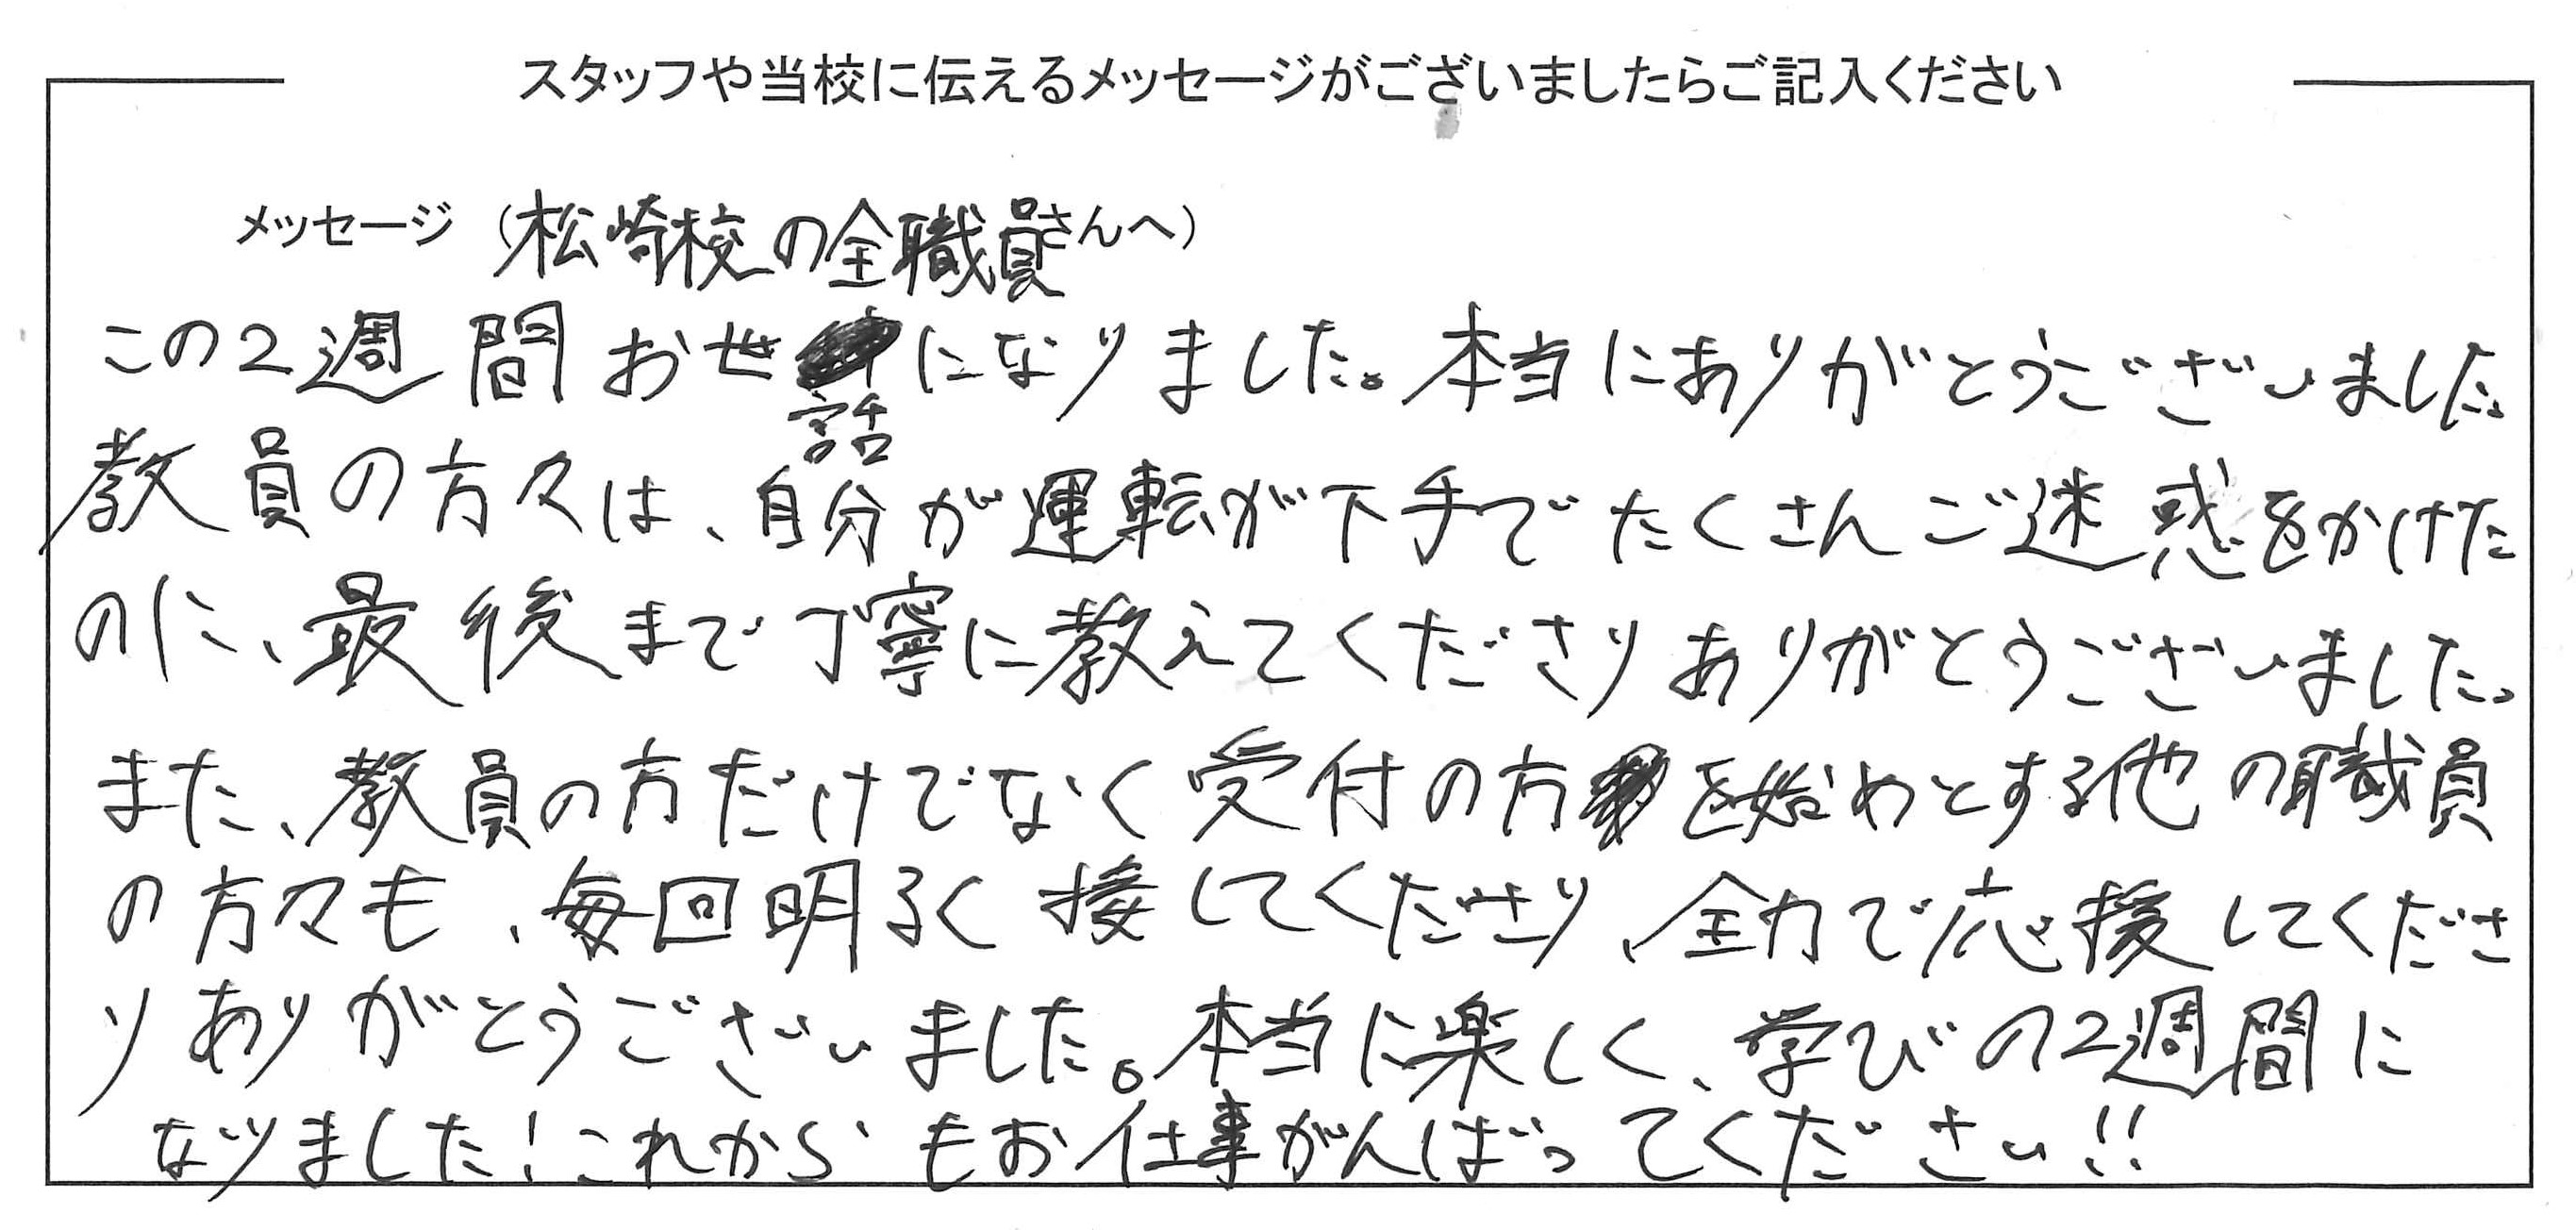 スタッフや当校に伝えるメッセージがございましたらご記入ください
メッセージ（松崎校の全職員さんへ）
この2週間お世話になりました。本当にありがとうございました。
教員の方々は、自分が運転が下手でたくさんご迷惑をかけた
のに、最後まで丁寧に教えてくださりありがとうございました。
また、教員の方だけでなく受付の方を始めとする他の職員
の方々も、毎回明るく接してくださり、全力で応援してくださ
りありがとうございました。本当に楽しく、学びの2週間に
なりました！これからもお仕事がんばってください!!